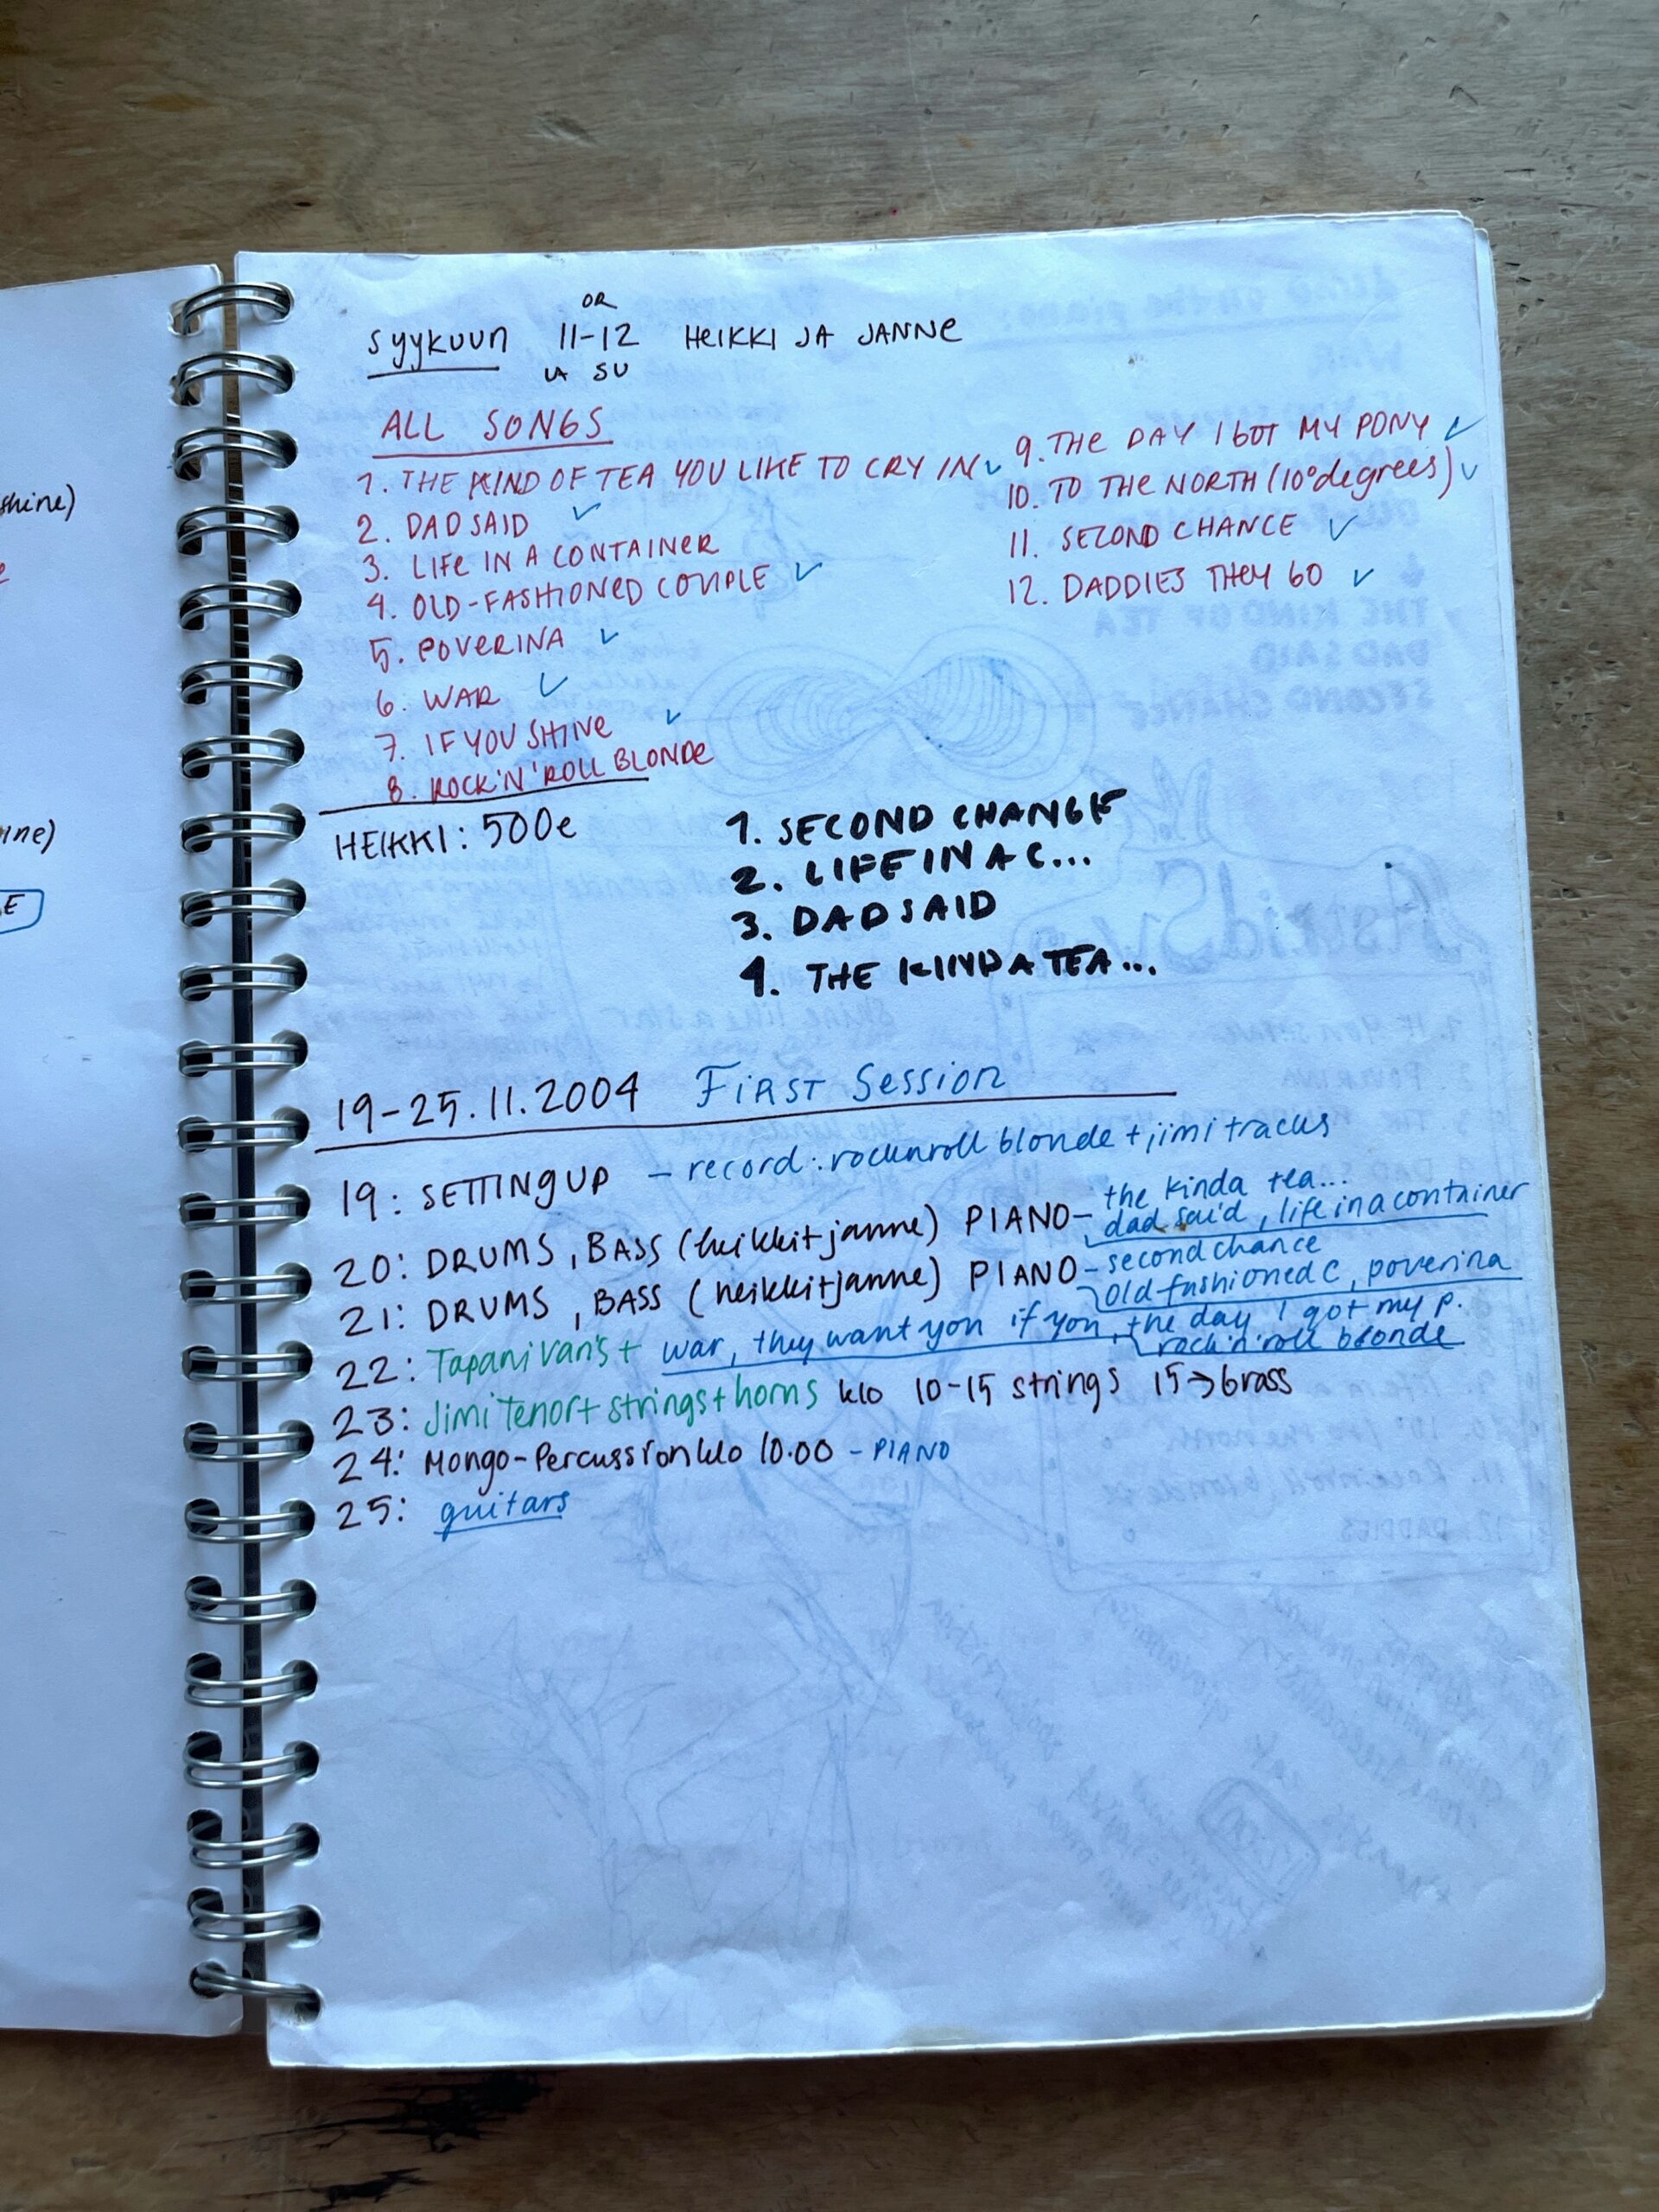 OR
syykuun 11-12 HEIKKI JA JANNE
LA SU
ALL SONGS
1. THE KIND OF TEA YOU LIKE TO CRY IN ✓
2. DAD SAID ✓
3. LIFE IN A CONTAINER
4. OLD-FASHIONED COUPLE ✓
5. POVERINA ✓
6. WAR ✓
7. IF YOU SHINE ✓
8. ROCK'N'ROLL BLONDE
9. THE DAY I GOT MY PONY ✓
10. TO THE NORTH (10° degrees) ✓
11. SECOND CHANCE ✓
12. DADDIES THEY GO ✓
HEIKKI: 500e
1. SECOND CHANGE
2. LIFE IN A C...
3. DAD SAID
4. THE KINDA TEA...
19-25.11.2004 FIRST SESSION
19: SETTING UP - record: rocknroll blonde + jimi tracks
20: DRUMS, BASS (heikki+janne) PIANO - the kinda tea...
dad said, life in a container
21: DRUMS, BASS (heikki+janne) PIANO - second chance
old fashioned c, poverina
22: Tapani van's + war, they want you if you, the day I got my p.
rock'n'roll blonde
23: Jimi Tenor + strings + horns klo 10-15 strings 15→brass
24: Mongo-Percussion klo 10.00 - PIANO
25: guitars
shine)
ine)
E